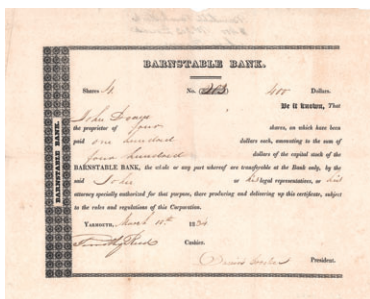 BARNSTABLE BANK.
Shares 4 No. (203) 400 Dollars.
Be it known, That
John
the proprietor of four shares, on which have been
paid one hundred dollars each, amounting to the sum
four hundred dollars of the capital stock of the
BARNSTABLE BANK, the whole or any part whereof are transferable at the Bank only, by the
said John or his legal representatives, or his
attorney specially authorized for that purpose, there producing and delivering up this certificate, subject
to the rules and regulations of this Corporation.
YARMOUTH, March 1834
Timothy Reed Cashier.
President.
BARNSTABLE BANK.